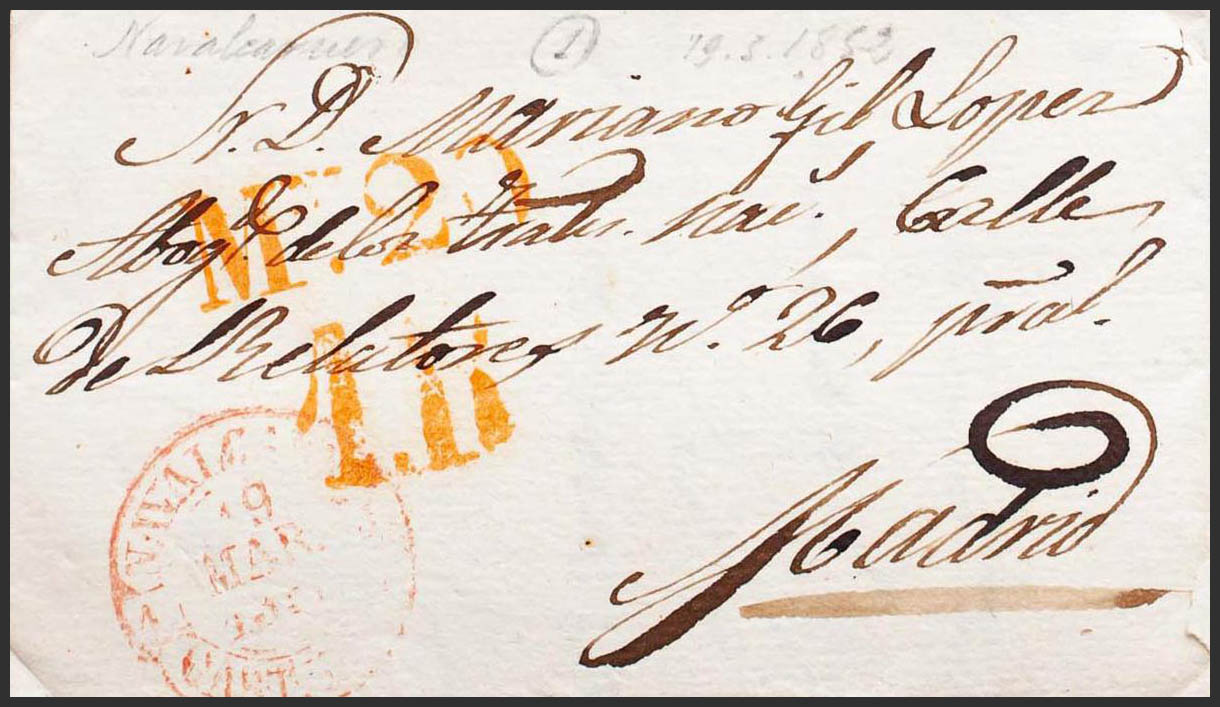 Navalcarnero 1 19.3.1853
Sr. D. Mariano Gil Lopez
Abogo. de los trabs. nacs., Calle
de Relatores No. 26, pral.
Madrid
Mr. 20
1.R
NAVALC
19
MAR